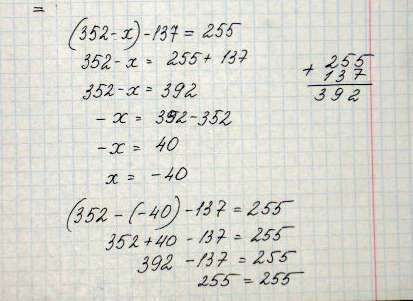 =
(352-x)-137=255
352-x= 255+137
352-x= 392
-x= 392-352
-x= 40
x= -40
+ 255
137
392
(352-(-40)-137=255
352+40-137=255
392-137=255
255=255